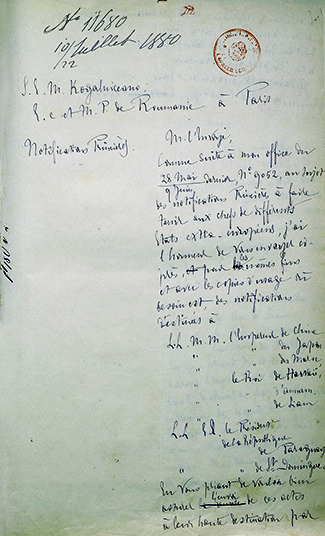 No 11680
10/22 Juillet 1880
S. E. M. Kogalniceano,
E. e et M. P. de Roumanie à Paris
Notifications Princières
M. l'Envoyé,
Comme suite à mon office du
28 Mai
9 Juin dernier No 9052, au sujet
des notifications Princières à faire
tenir aux chefs de différents
États extra-européens, j'ai
l'honneur de Vous envoyer ci-
près, pour les mêmes fins
et avec les copies d'usage
des notifications
destinées à
LL. M. M. l'Empereur de Chine
" " du Japon
" " du Maroc
" le Roi de Hawaï,
" " d'Annam
" " de Siam
LL. EE. le Président
de la République
de Paraguay
" " de St Domingue.
En Vous priant de vouloir bien
de ces actes
à leur haute destination par